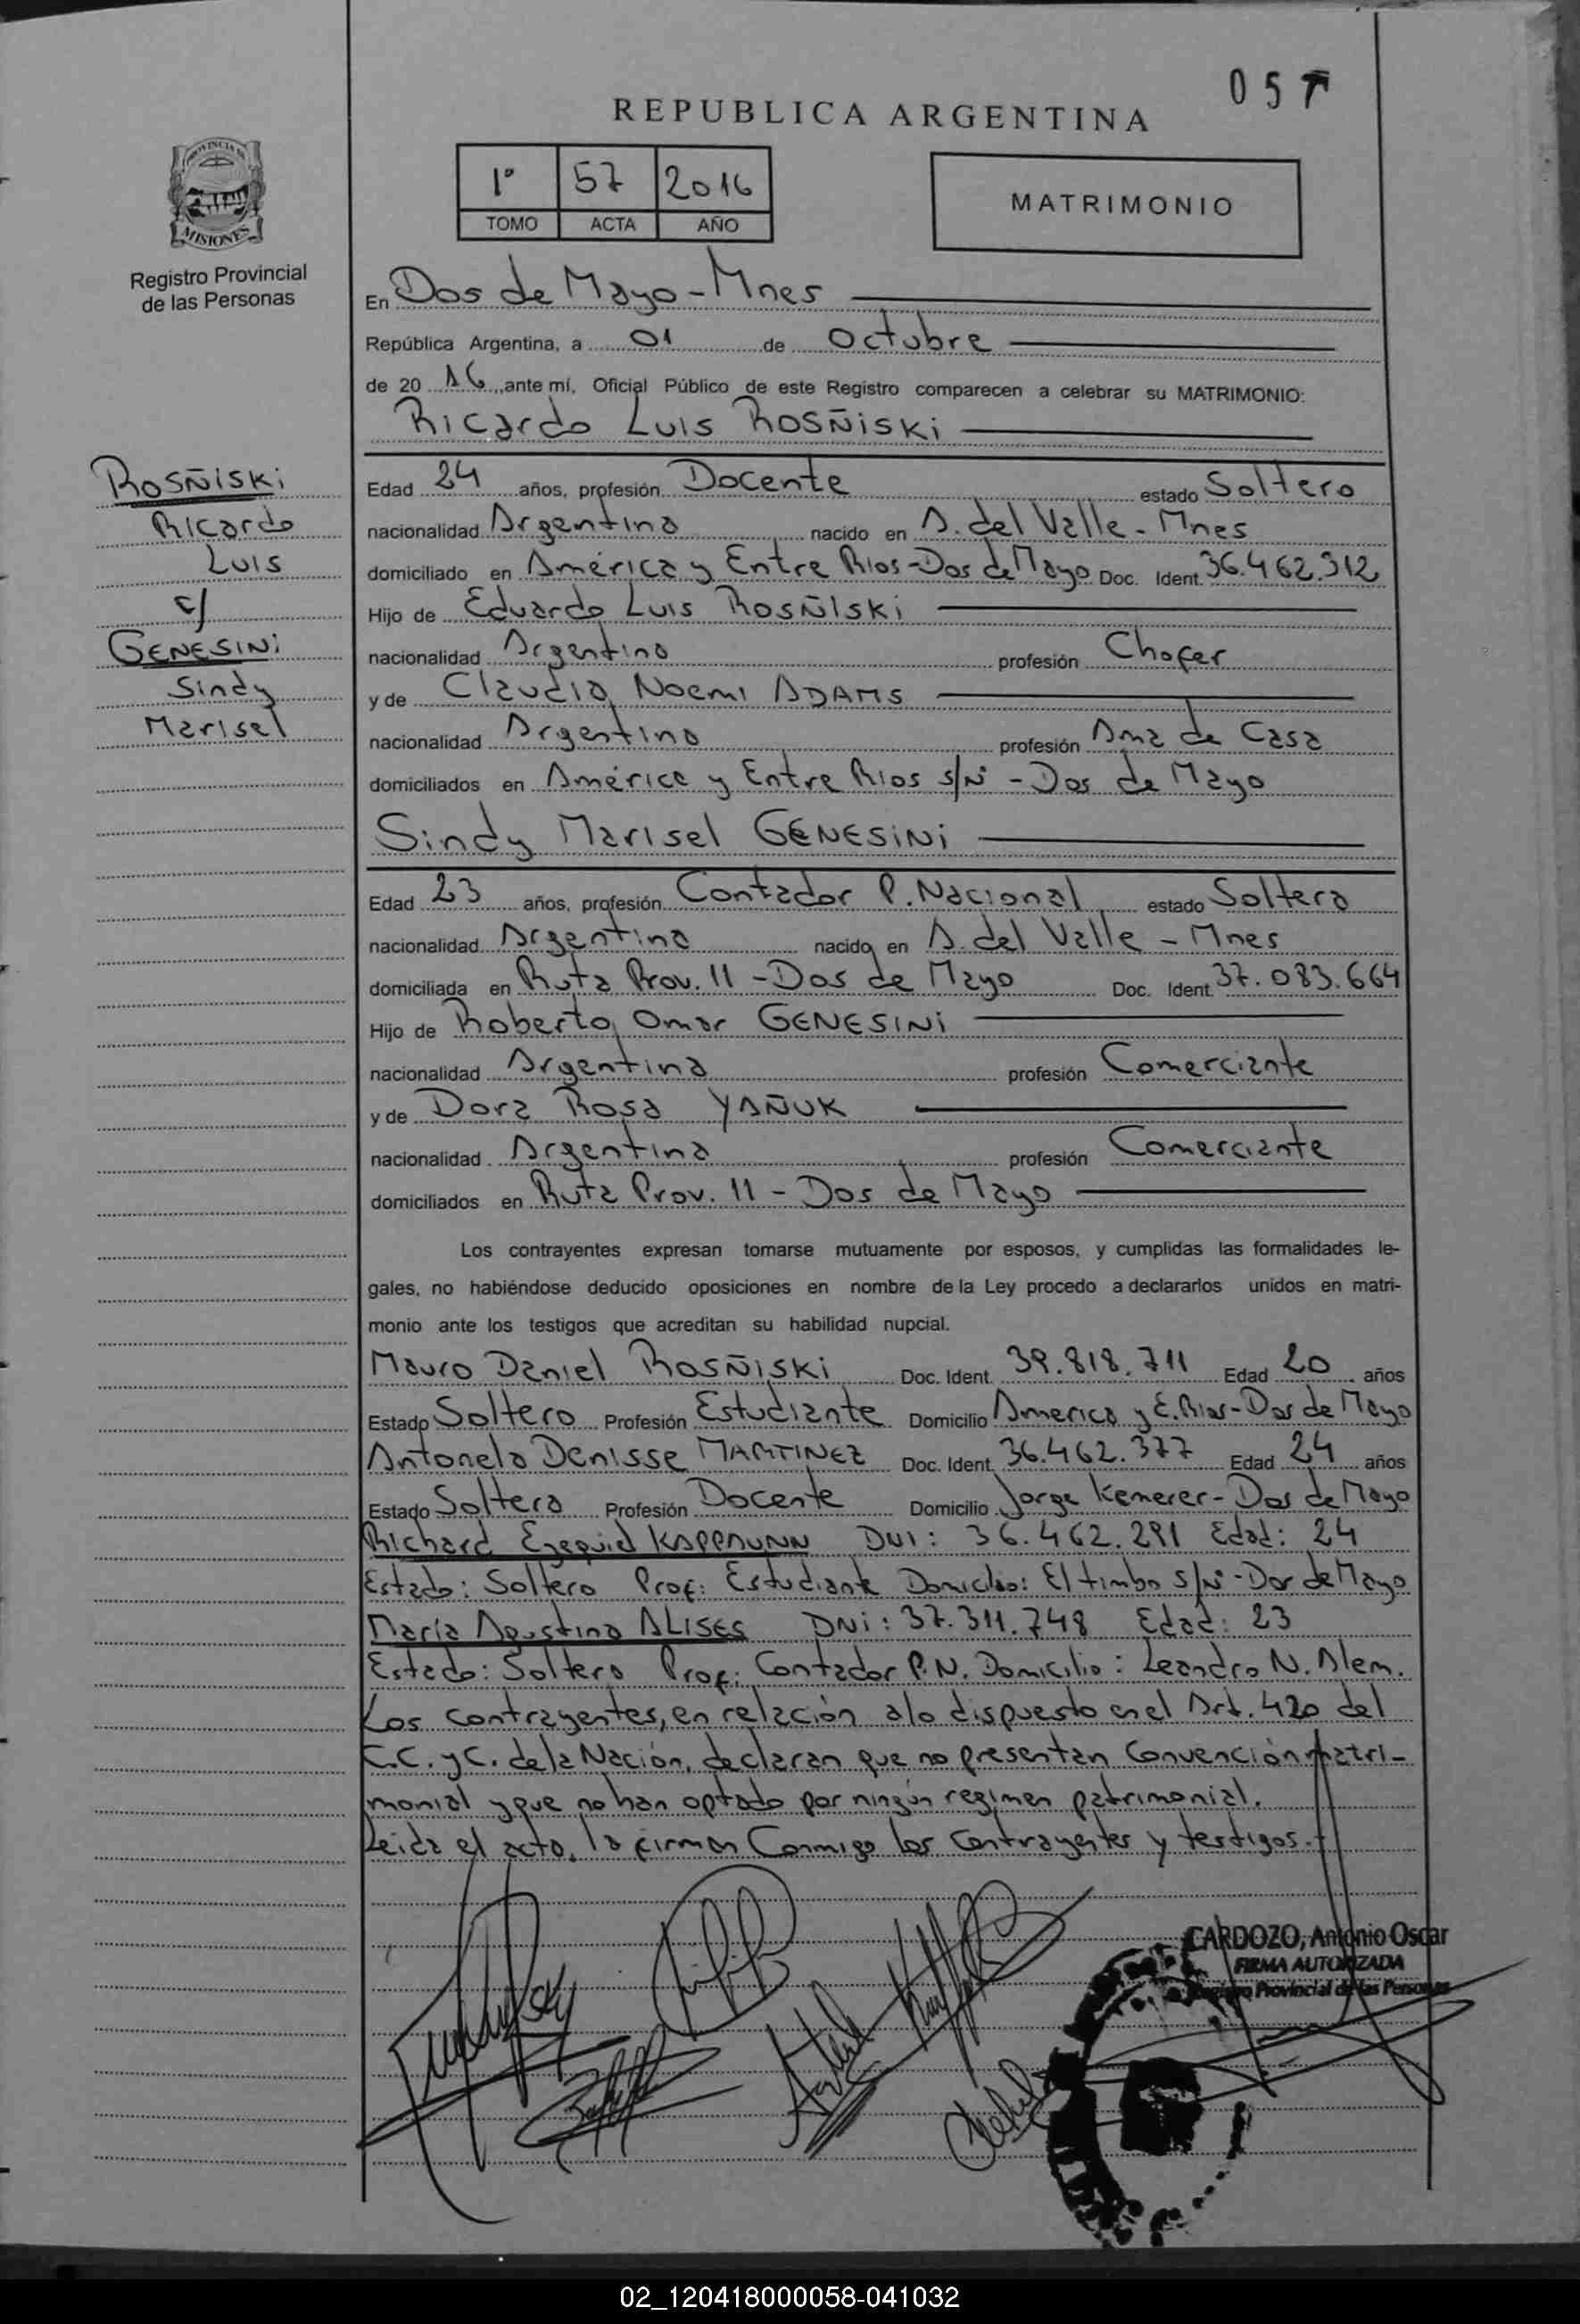 057
REPUBLICA ARGENTINA
1º 57 2016
TOMO ACTA AÑO
MATRIMONIO
PROVINCIA DE
MISIONES
Registro Provincial
de las Personas
En Dos de Mayo - Mnes
República Argentina, a 01 de Octubre
de 20 16, ante mí, Oficial Público de este Registro comparecen a celebrar su MATRIMONIO:
Ricardo Luis ROSÑISKI
ROSÑISKI
Ricardo
Luis
c/
GENESINI
Sindy
Marisel
Edad 24 años, profesión Docente estado Soltero
nacionalidad Argentina nacido en A. del Valle - Mnes
domiciliado en América y Entre Rios - Dos de Mayo Doc. Ident. 36.462.312
Hijo de Eduardo Luis ROSÑISKI
nacionalidad Argentino profesión Chofer
y de Claudia Noemi ADAMS
nacionalidad Argentina profesión Ama de Casa
domiciliados en América y Entre Rios s/Nº - Dos de Mayo
Sindy Marisel GENESINI
Edad 23 años, profesión Contador P. Nacional estado Soltera
nacionalidad Argentina nacido en A. del Valle - Mnes
domiciliada en Ruta Prov. 11 - Dos de Mayo Doc. Ident. 37.083.664
Hijo de Roberto Omar GENESINI
nacionalidad Argentina profesión Comerciante
y de Dora Rosa YAÑUK
nacionalidad Argentina profesión Comerciante
domiciliados en Ruta Prov. 11 - Dos de Mayo
Los contrayentes expresan tomarse mutuamente por esposos, y cumplidas las formalidades le-
gales, no habiéndose deducido oposiciones en nombre de la Ley procedo a declararlos unidos en matri-
monio ante los testigos que acreditan su habilidad nupcial.
Mauro Daniel ROSÑISKI Doc. Ident. 39.818.711 Edad 20 años
Estado Soltero Profesión Estudiante Domicilio America y E. Rios - Dos de Mayo
Antonela Denisse MARTINEZ Doc. Ident. 36.462.377 Edad 24 años
Estado Soltera Profesión Docente Domicilio Jorge Kemerer - Dos de Mayo
Richard Ezequiel KAPPAUNN DNI: 36.462.291 Edad: 24
Estado: Soltero Prof: Estudiante Domicilio: El timbo s/Nº - Dos de Mayo
María Agustina ALISES DNi: 37.311.748 Edad: 23
Estado: Soltera Prof: Contador P.N. Domicilio: Leandro N. Alem.
Los contrayentes, en relación a lo dispuesto en el Art. 420 del
C.C. y C. de la Nación, declaran que no presentan Convención matri-
monial y que no han optado por ningún regimen patrimonial.
Leida el acta, la firman Conmigo los Contrayentes y testigos.-
CARDOZO, Antonio Oscar
FIRMA AUTORIZADA
Registro Provincial de las Personas
02_120418000058-041032